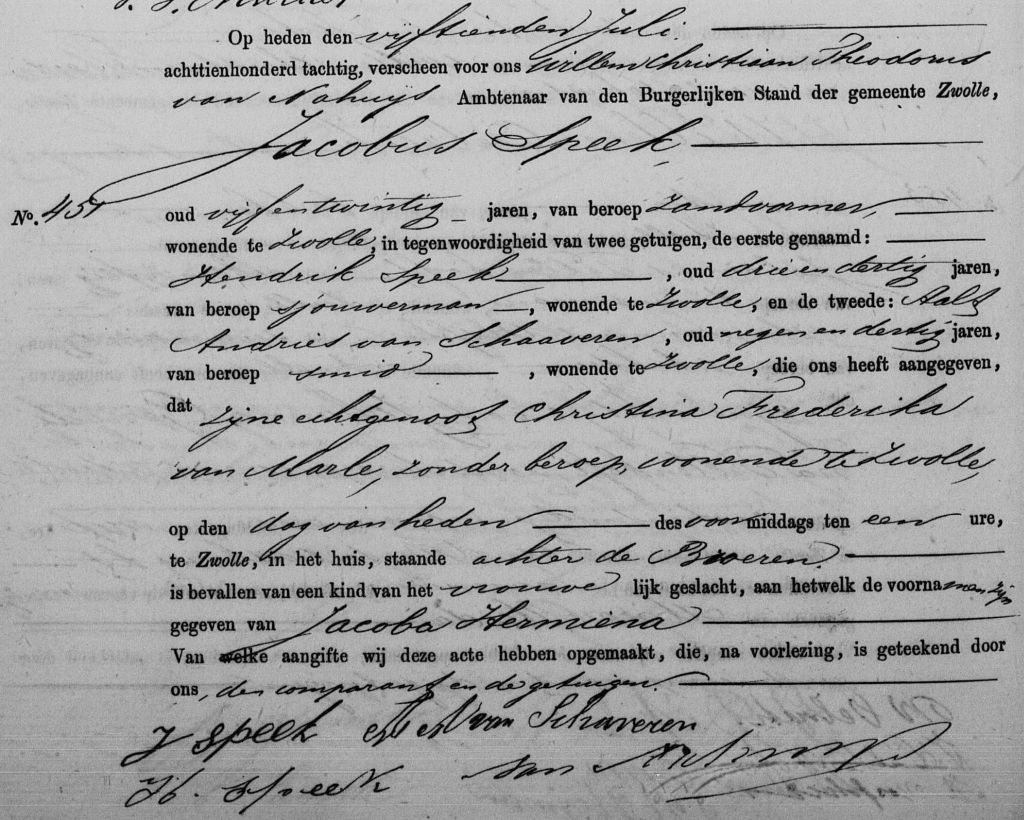 Op heden den vijftienden Juli
achttienhonderd tachtig, verscheen voor ons Willem Christiaan Theodorus
van Nahuijs Ambtenaar van den Burgerlijken Stand der gemeente Zwolle,
Jacobus Speek,
No. 451
oud vijfentwintig jaren, van beroep zandvormer,
wonende te Zwolle, in tegenwoordigheid van twee getuigen, de eerste genaamd:
Hendrik Speek, oud drie en dertig jaren,
van beroep sjouwerman, wonende te Zwolle, en de tweede: Aalt
Andries van Schaaveren, oud negen en dertig jaren,
van beroep smid, wonende te Zwolle, die ons heeft aangegeven,
dat zijne echtgenoot Christina Frederika
van Marle, zonder beroep, wonende te Zwolle,
op den dag van heden des voormiddags ten een ure,
te Zwolle, in het huis, staande achter de Broeren,
is bevallen van een kind van het vrouwelijk geslacht, aan hetwelk de voornamen zijn
gegeven van Jacoba Hermiena
Van welke aangifte wij deze acte hebben opgemaakt, die, na voorlezing, is geteekend door
ons, den comparant en de getuigen.
J Speek A A van Schaveren
H. Speek van Nahuijs